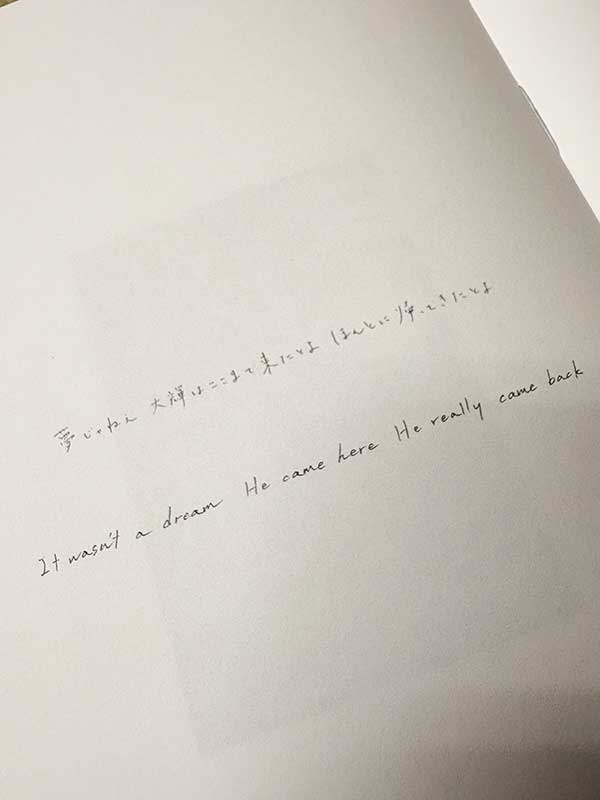 夢じゃねえ 大輝はここまで来たとよ ほんとに帰ってきたとよ
It wasn't a dream He came here He really came back